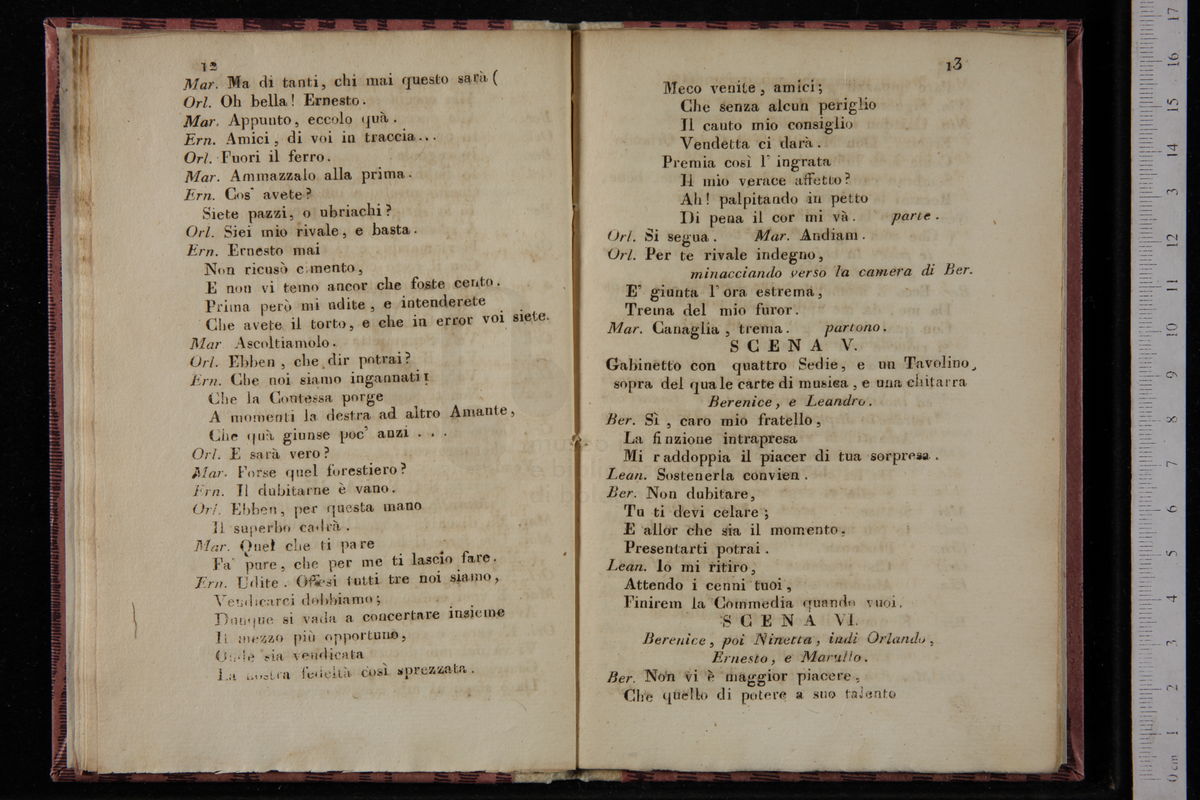 12
Mar. Ma di tanti, chi mai questo sarà (
Orl. Oh bella! Ernesto.
Mar. Appunto, eccolo quà.
Ern. Amici, di voi in traccia...
Orl. Fuori il ferro.
Mar. Ammazzalo alla prima.
Ern. Cos' avete?
Siete pazzi, o ubriachi?
Orl. Siei mio rivale, e basta.
Ern. Ernesto mai
Non ricusò cimento,
E non vi temo ancor che foste cento.
Prima però mi udite, e intenderete
Che avete il torto, e che in error voi siete.
Mar Ascoltiamolo.
Orl. Ebben, che dir potrai?
Ern. Che noi siamo ingannati!
Che la Contessa porge
A momenti la destra ad altro Amante,
Che quà giunse poc' anzi . . .
Orl. E sarà vero?
Mar. Forse quel forestiero?
Ern. Il dubitarne è vano.
Orl. Ebben, per questa mano
Il superbo cadrà.
Mar. Quel che ti pare
Fa' pure, che per me ti lascio fare.
Ern. Udite. Offesi tutti tre noi siamo,
Vendicarci dobbiamo;
Dunque si vada a concertare insieme
Il mezzo più opportuno,
Onde sia vendicata
La nostra fedeltà così sprezzata.
13
Meco venite, amici;
Che senza alcun periglio
Il cauto mio consiglio
Vendetta ci darà.
Premia così l' ingrata
Il mio verace affetto?
Ah! palpitando in petto
Di pena il cor mi và. parte.
Orl. Si segua. Mar. Andiam.
Orl. Per te rivale indegno,
minacciando verso la camera di Ber.
E' giunta l' ora estrema,
Trema del mio furor.
Mar. Canaglia, trema. partono.
SCENA V.
Gabinetto con quattro Sedie, e un Tavolino,
sopra del quale carte di musica, e una chitarra
Berenice, e Leandro.
Ber. Sì, caro mio fratello,
La finzione intrapresa
Mi raddoppia il piacer di tua sorpresa.
Lean. Sostenerla convien.
Ber. Non dubitare,
Tu ti devi celare;
E allor che sia il momento,
Presentarti potrai.
Lean. Io mi ritiro,
Attendo i cenni tuoi,
Finirem la Commedia quando vuoi.
SCENA VI.
Berenice, poi Ninetta, indi Orlando,
Ernesto, e Marullo.
Ber. Non vi è maggior piacere,
Che quello di potere a suo talento
0 cm 1 2 3 4 5 6 7 8 9 10 11 12 13 14 15 16 17